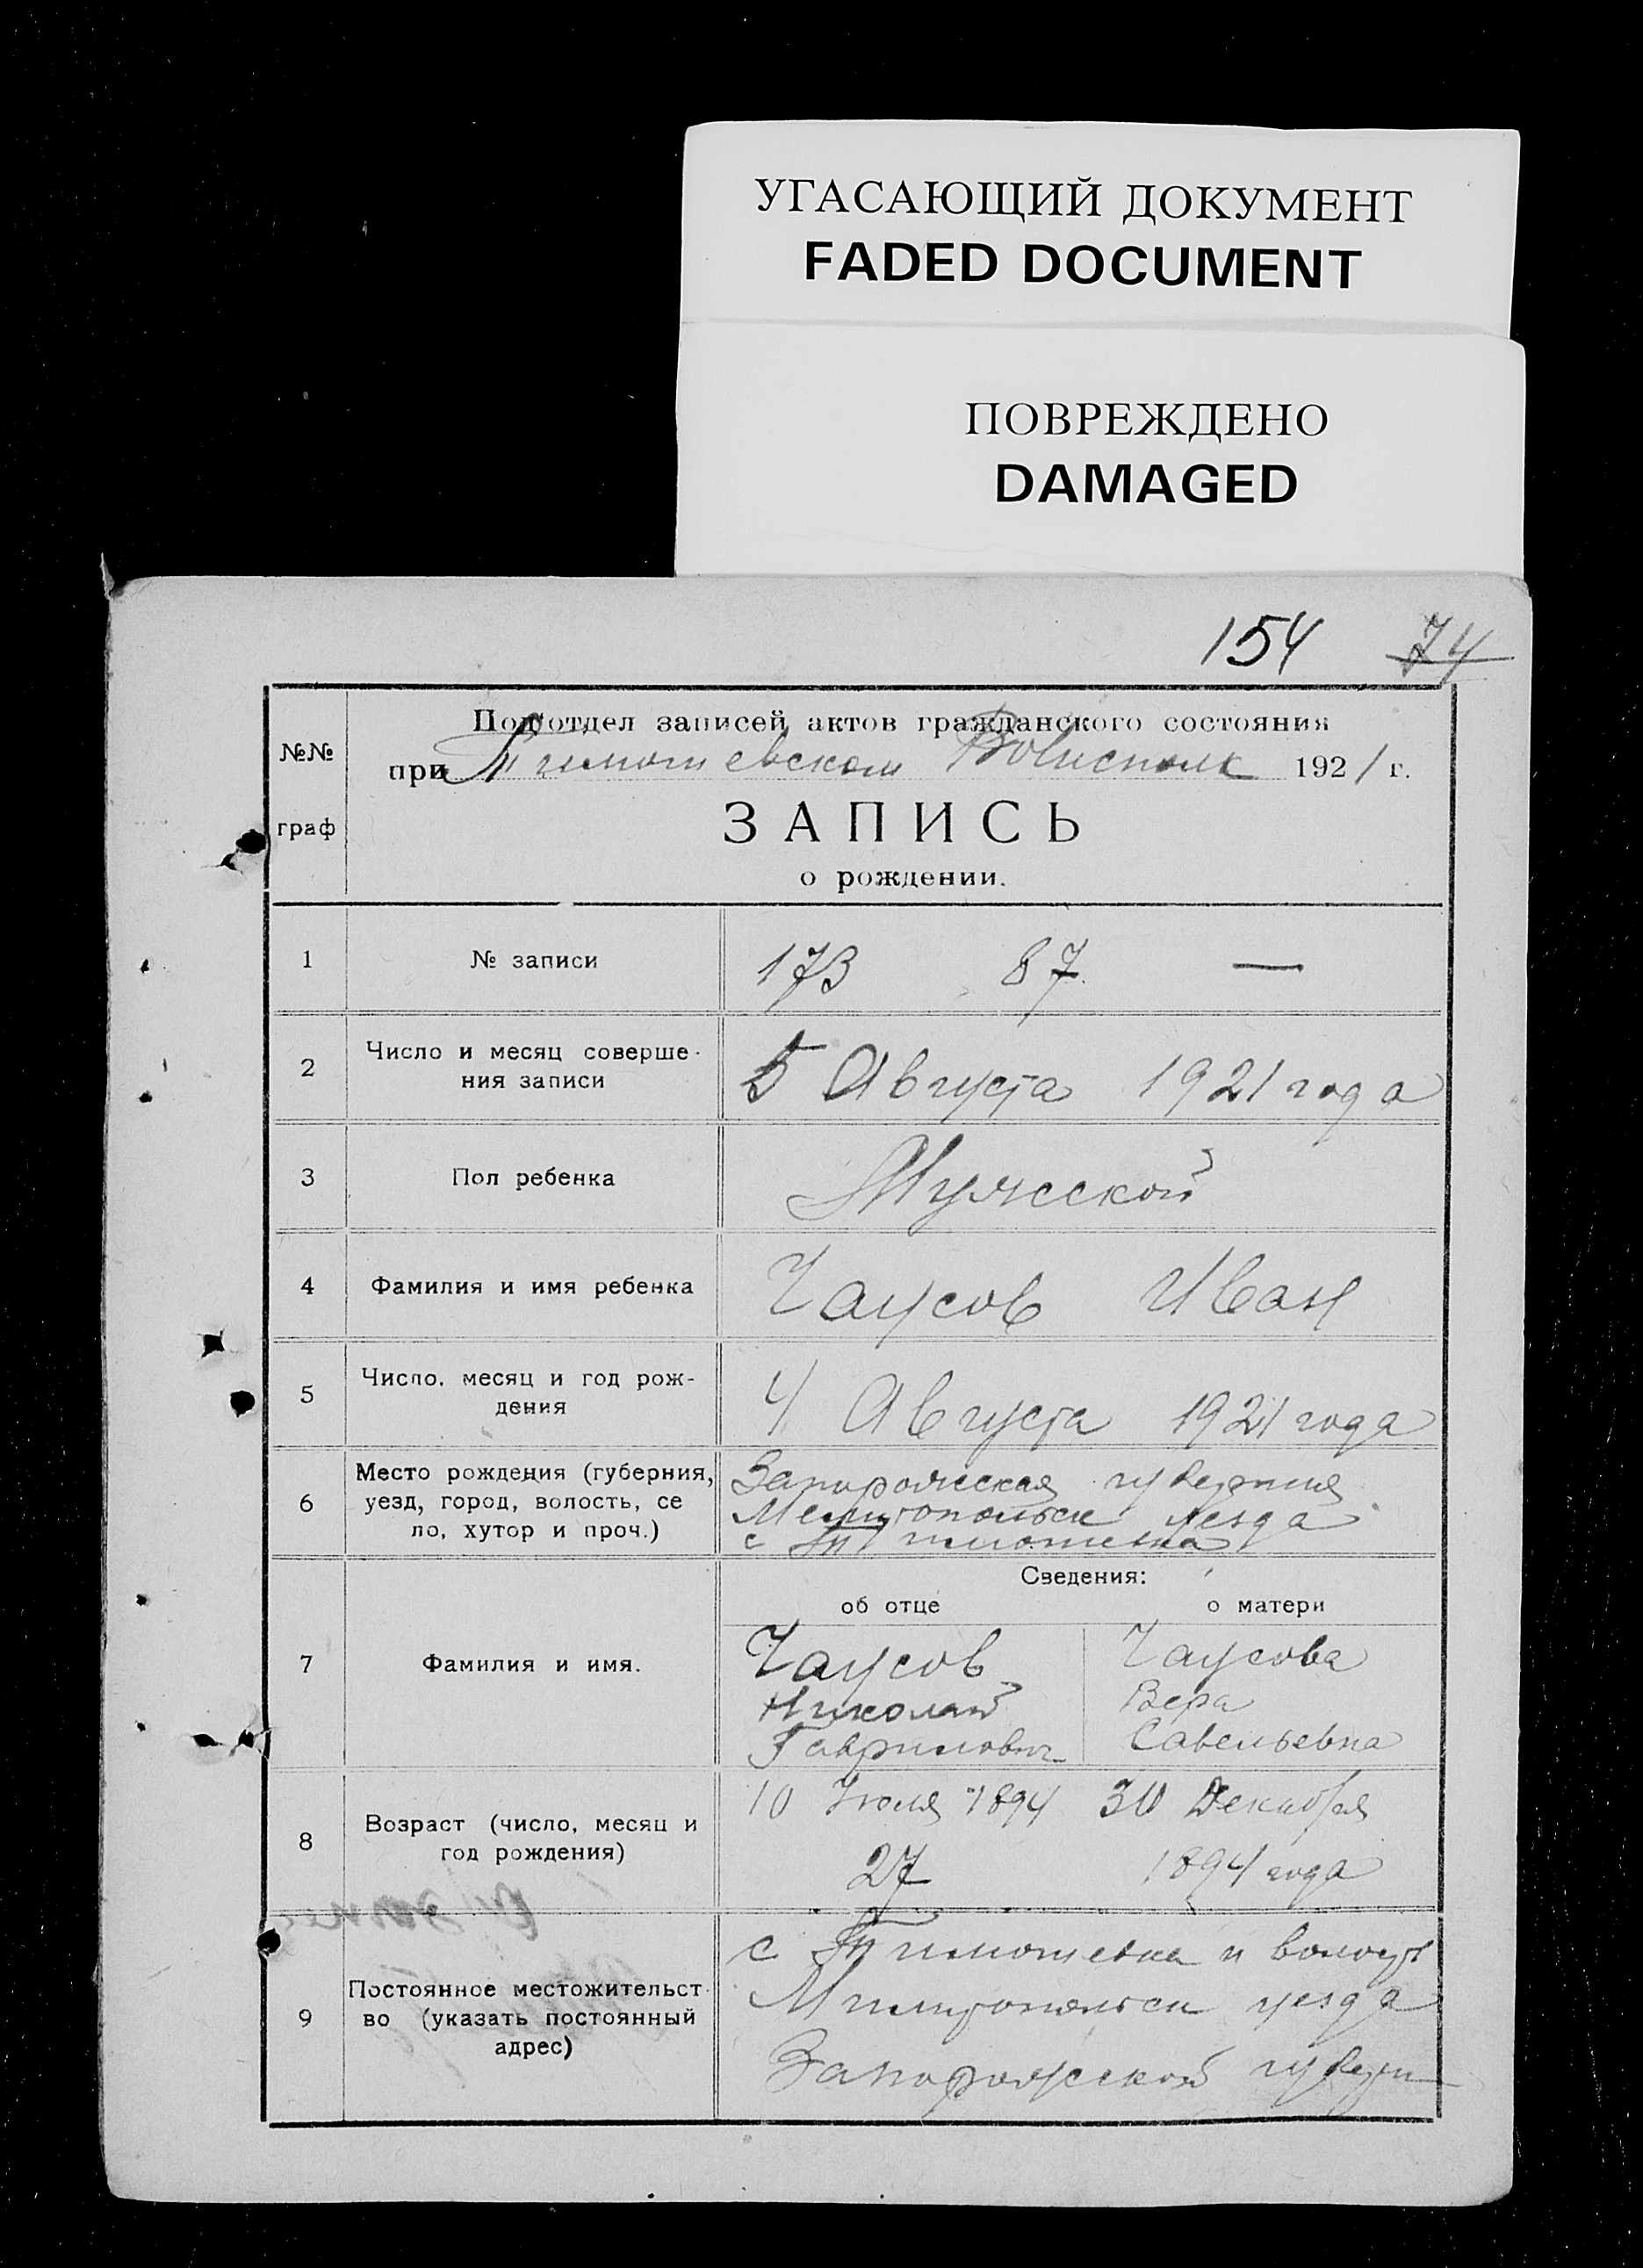 УГАСАЮЩИЙ ДОКУМЕНТ
FADED DOCUMENT
ПОВРЕЖДЕНО
DAMAGED
154 74
№№
граф
Подотдел записей актов гражданского состояния
при Тимошевском Волисполк 1921 г.
ЗАПИСЬ
о рождении.
1 № записи 173 87. —
2 Число и месяц соверше-
ния записи
5 Августа 1921 года
3 Пол ребенка Мужской
4 Фамилия и имя ребенка Чаусов Иван
5 Число, месяц и год рож-
дения
4 Августа 1921 года
6 Место рождения (губерния,
уезд, город, волость, се
ло, хутор и проч.)
Запорожская губерния
Мелитопольск уезда
с Тимошевка
Сведения:
об отце о матери
7 Фамилия и имя.
Чаусов
Николай
Гаврилович
Чаусова
Вера
Савельевна
8 Возраст (число, месяц и
год рождения)
10 Июля 1894
27
30 Декабря
1894 года
9 Постоянное местожительст
во (указать постоянный
адрес)
с Тимошевка и волость
Мелитопольск уезда
Запорожской губерн